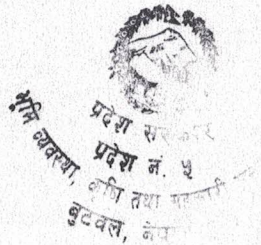 प्रदेश सरकार
प्रदेश नं. ५
भूमि व्यवस्था, कृषि तथा सहकारी
बुटवल, नेपाल